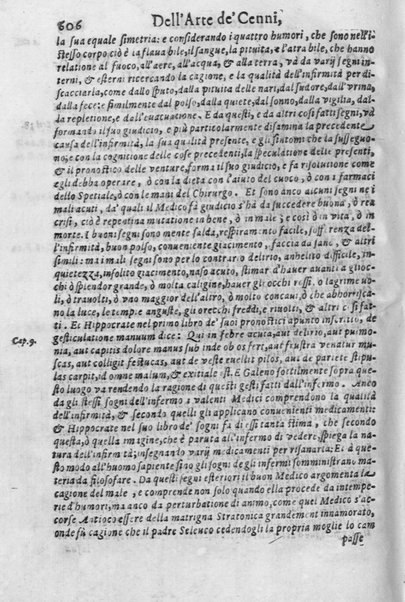 606 Dell'Arte de' Cenni,
la sua equale simetria: e considerando i quattro humori, che sono nell'i-
stesso corpo, ciò è la flaua bile, il sangue, la pituita, e l'atra bile, che hanno
relatione al fuoco, all'aere, all'acqua, & alla terra, và da varij segni in-
terni, & esterni ricercando la cagione, e la qualità dell'infirmità per di-
scacciarla, come dallo sputo, dalla pituita delle nari, dal sudore, dall'vrina,
dalla fece: similmente dal polso, dalla quiete, dal sonno, dalla vigilia, dal-
la repletione, e dell'euacuatione. E da questi, e da altri cosi fatti segni, và
formando il suo giudicio, e più particolarmente disamina la precedente
causa dell'infirmità, la sua qualità presente, e gli sintomi che la susseguo-
no, e con la cognitione delle cose precedenti, la speculatione delle presenti,
& il pronostico delle venture, forma il suo giudicio, e fa risolutione come
egli debba operare, ò con la dieta con l'aiuto del cuoco, ò con i farmaci
dello Spetiale, ò con le mani del Chirurgo. Et sono anco alcuni segni ne i
mali acuti, da' quali il Medico fà giudicio s'hà da succedere buona, ò rea
crisi, ciò è repentina mutatione in bene, ò in male; e così ò in vita, ò in
morte. I buoni segni sono mente salda, respiramento facile, sofferenza del-
l'infirmità, buon polso, conueniente giacimento, faccia da sano, & altri
simili: ma i mali segni sono per lo contrario delirio, anhelito difficile, in-
quietezza, insolito giacimento, naso acuto, stimar d'hauer auanti a gli oc-
chi ò splendor grande, ò molta caligine, hauer gli occhi rossi. o lagrime uo-
li, ò trauolti, ò vno maggior dell'altro, ò molto concaui, ò che abborrisca-
no la luce, le tempie anguste, gli orecchi freddi, e riuolti, & altri c. si fat-
ti. Et Hippocrate nel primo libro de' suoi pronostici apunto inscritto, de
Cap. 9. gesticulatione manuum dice: Qui in febre acuta, aut delirio, aut pulmo-
nia, aut capitis dolore manus sub inde ob os fert, aut frustra venatur mu-
scas, aut colligit festucas, aut de veste euellit pilos, aut de pariete stipu-
las carpit, id omne malum, & exitiale est. E Galeno sottilmente sopra que-
sto luogo va rendendo la ragione di questi gesti fatti dall'infermo. Anco
da gli stessi sogni dell'infermo i valenti Medici comprendono la qualità
dell'infirmità, & secondo quelli gli applicano conuenienti medicamenti:
& Hippocrate nel suo libro de' sogni fa di essi canta stima, che secondo
questa, ò quella imagine, che è paruta all'infermo di vedere, spiega la na-
tura dell'infirmità; insegnando varij medicamenti per risanarla: Et à que-
sto modo all'huomo sapiente sino gli sogni de gli infermi somministrano ma-
teria da filosofare. Da questi segni esteriori il buon Medico argomenta la
cagione del male, e comprende non solo quando ella procede da intempe-
rie d'humori, ma anco da perturbatione di animo, come quel Medico s'ac-
corse Antioco essere della matrigna Stratonica grandement innamorato,
onde che il padre Seleuco cedendogli la propria moglie lo cam
passe